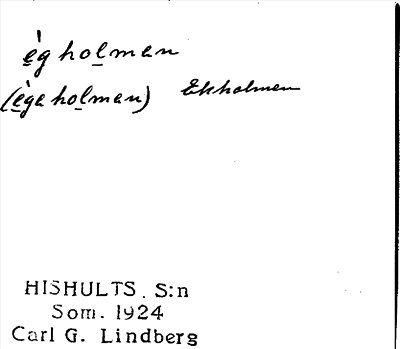 ègholmen
(ègeholmen) Ekholmen
HISHULTS. S:n
Som. 1924
Carl G. Lindberg